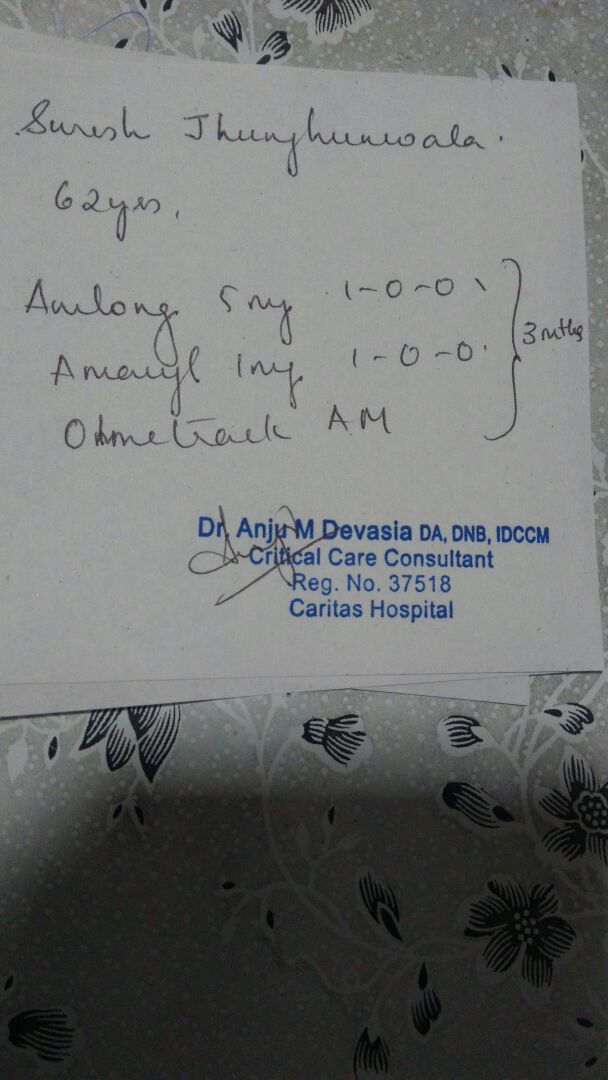 Suresh Jhunjhunwala.
62yrs,
Amlong 5 mg 1-0-0
Amaryl 1mg 1-0-0 3 mths
AM
Dr. Anju M Devasia DA, DNB, IDCCM
Critical Care Consultant
Reg. No. 37518
Caritas Hospital